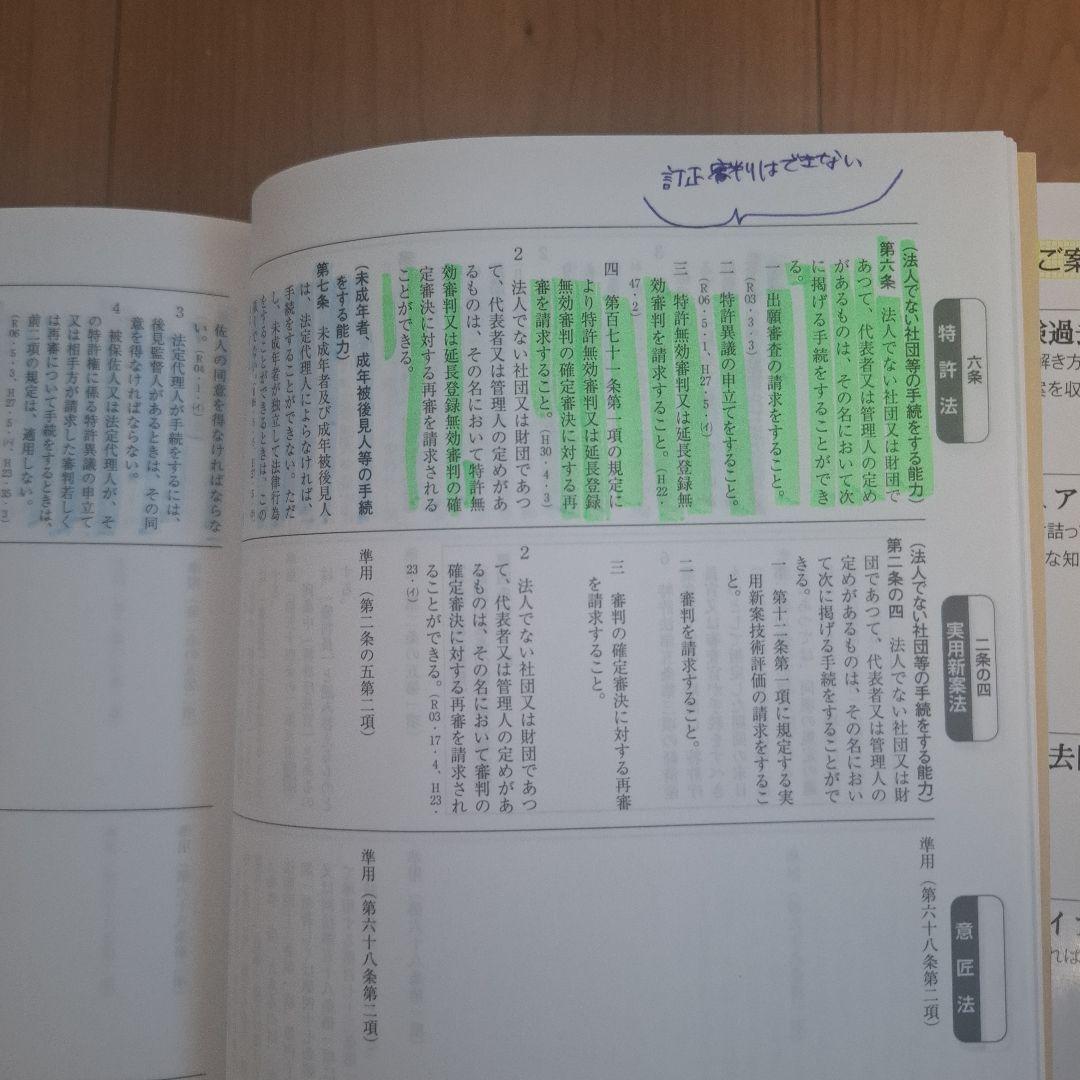 訂正審判はできない
六条
特許法
(法人でない社団等の手続をする能力)
第六条 法人でない社団又は財団で
あつて、代表者又は管理人の定め
があるものは、その名において次
に掲げる手続をすることができ
る。
一 出願審査の請求をすること。
(R03・3・3)
二 特許異議の申立てをすること。
(R06・5・1、H27・5・(イ)
三 特許無効審判又は延長登録無
効審判を請求すること。(H22・
47・2)
四 第百七十一条第一項の規定に
より特許無効審判又は延長登録
無効審判の確定審決に対する再
審を請求すること。(H30・4・3)
2 法人でない社団又は財団であつ
て、代表者又は管理人の定めがあ
るものは、その名において特許無
効審判又は延長登録無効審判の確
定審決に対する再審を請求される
ことができる。
(未成年者、成年被後見人等の手続
をする能力)
第七条 未成年者及び成年被後見人
は、法定代理人によらなければ、
手続をすることができない。ただ
し、未成年者が独立して法律行為
をすることができるときは、この
二条の四
実用新案法
(法人でない社団等の手続をする能力)
第二条の四 法人でない社団又は財
団であつて、代表者又は管理人の
定めがあるものは、その名におい
て次に掲げる手続をすることがで
きる。
一 第十二条第一項に規定する実
用新案技術評価の請求をするこ
と。
二 審判を請求すること。
三 審判の確定審決に対する再審
を請求すること。
2 法人でない社団又は財団であつ
て、代表者又は管理人の定めがあ
るものは、その名において審判の
確定審決に対する再審を請求され
ることができる。(R03・17・4、H23・
23・(イ)
準用(第二条の五第二項)
意匠法
準用(第六十八条第二項)
準用(第六十八条第二項)
佐人の同意を得なければならな
い。(R04・1・(イ)
3 法定代理人が手続をするには、
後見監督人があるときは、その同
意を得なければならない。
4 被保佐人又は法定代理人が、そ
の特許権に係る特許異議の申立て
又は相手方が請求した審判若しく
は再審について手続をするときは、
前二項の規定は、適用しない。
ご案
解き方
案を収
、ア
詰っ
な知